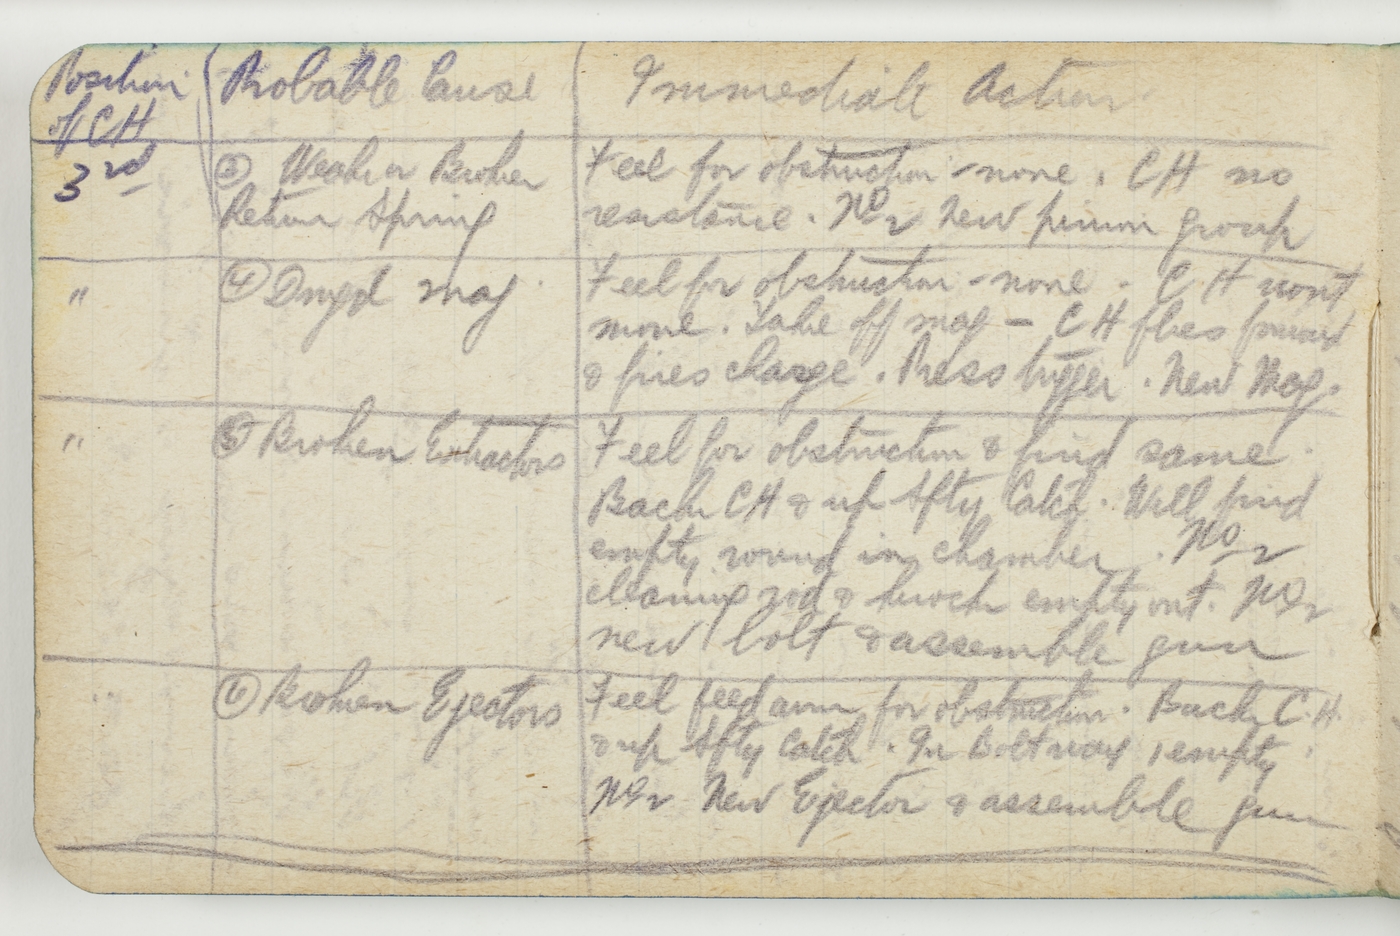 Position of CH | Probable Cause | Immediate Action
3rd | ③ Weak or Broken | Feel for obstruction - none. CH no
Return Spring | resistance. No 2 New pinion group
" | ④ Dmgd mag. | Feel for obstruction - none. CH wont
move. Take off mag - CH flies forward
& fires charge. Press trigger. New Mag.
" | ⑤ Broken Extractors | Feel for obstruction & find same.
Back CH & up Sfty Catch. Will find
empty round in chamber. No 2
cleaning rod & knock empty out. No 2
new bolt & assemble gun
⑥ Broken Ejectors | Feel feed arm for obstruction. Back C.H.
& up Sfty Catch. In Boltway, 1 empty.
No 2 New Ejector & assemble gun